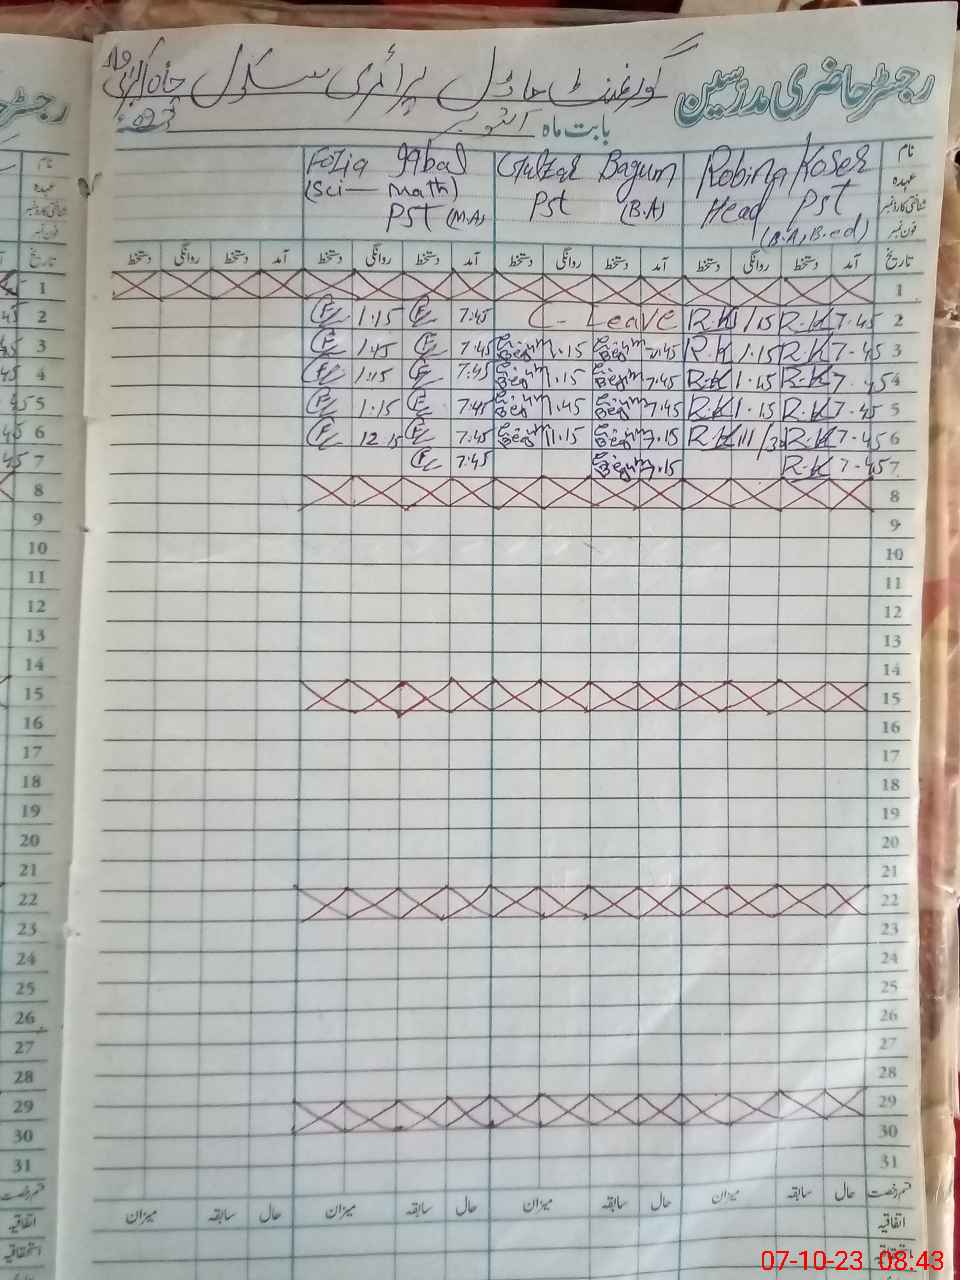 رجسٹر حاضری مدرسین گورنمنٹ ماڈل پرائمری سکول
بابت ماہ اکتوبر
نام Robina Koser Gulzar Bagum Fozia Iqbal
عہدہ Head Pst Pst (B.A) (Sci — Math)
شناختی کارڈ نمبر (B.A, B.ed) Pst (M.A)
فون نمبر
تاریخ آمد دستخط روانگی دستخط آمد دستخط روانگی دستخط آمد دستخط روانگی دستخط آمد دستخط روانگی دستخط
1 1
2 7.45 R.K 1/15 R.K C- Leave 7.45 1.15 2
3 7-45 R.K 1.15 R.K 7.45 Begum 1.15 Begum 7.45 1.45 3
4 7.45 R.K 1.15 R.K 7.45 Begum 1.15 Begum 7.45 1.15 4
5 7.45 R.K 1.15 R.K 7.45 Begum 1.45 Begum 7.45 1.15 5
6 7.45 R.K 11/30 R.K 7.15 Begum 11.15 Begum 7.45 12.15 6
7 7.45 R.K 7.15 Begum 7.45 7
8 8
9 9
10 10
11 11
12 12
13 13
14 14
15 15
16 16
17 17
18 18
19 19
20 20
21 21
22 22
23 23
24 24
25 25
26 26
27 27
28 28
29 29
30 30
31 31
قسم رخصت حال سابقہ میزان حال سابقہ میزان حال سابقہ میزان حال سابقہ میزان
اتفاقیہ
استحقاقیہ
07-10-23 08:43